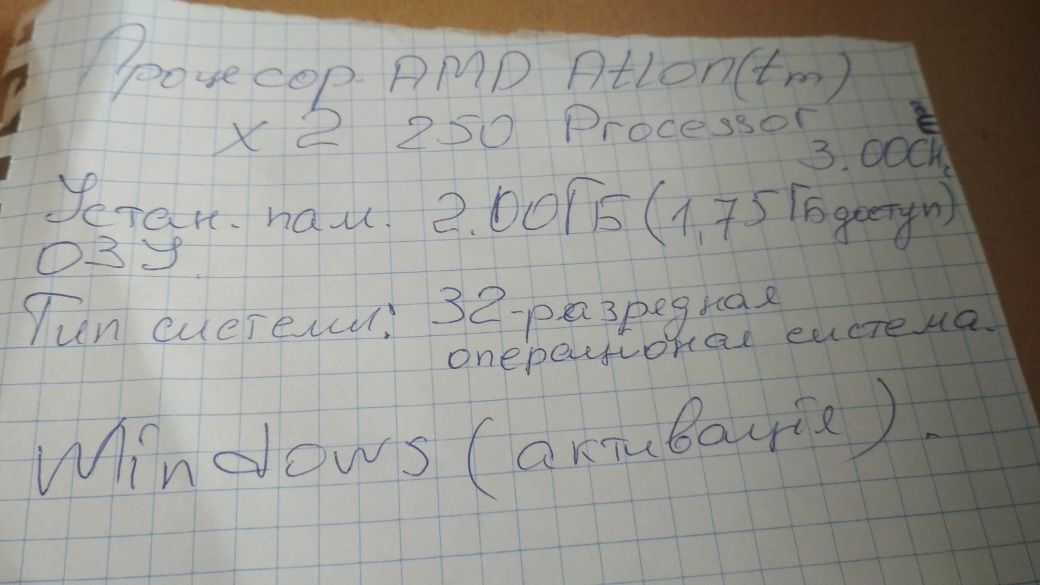 Процесор AMD Atlon(tm)
x 2 250 Processor
3.00
Устан. пам. 2.00ГБ (1,75 ГБ доступ)
ОЗУ.
Тип системи: 32-разредная
операционая система.
Windows (активація).